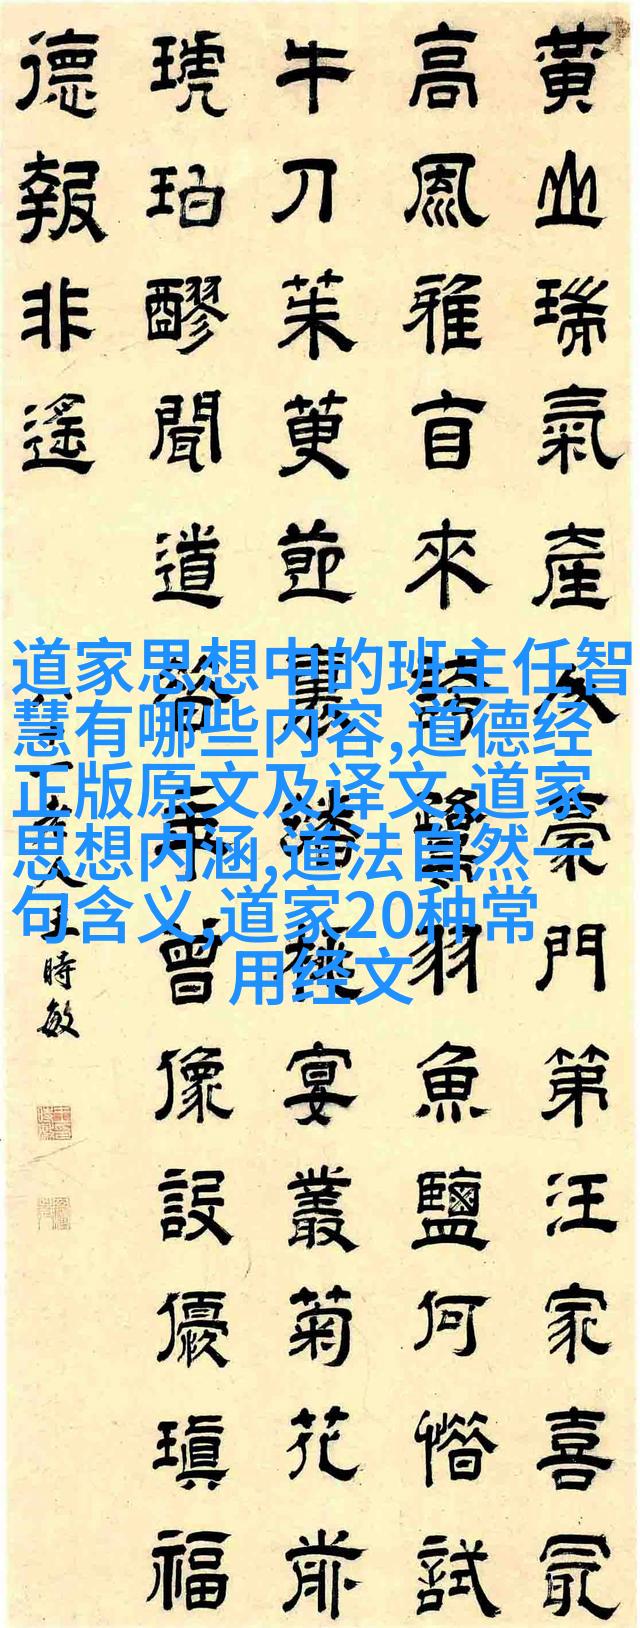 黃山瑞氣產人豪門第汪家喜最
高風雅盲來誇鷺羽魚鹽何惜試
牛刀茱萸節宴叢菊花前
琥珀醪聞道年曾像設優瑱福
德報非遙
老人王時敏
道家思想中的班主任智
慧有哪些内容,道德经
正版原文及译文,道家
思想内涵,道法自然一
句含义,道家20种常
用经文